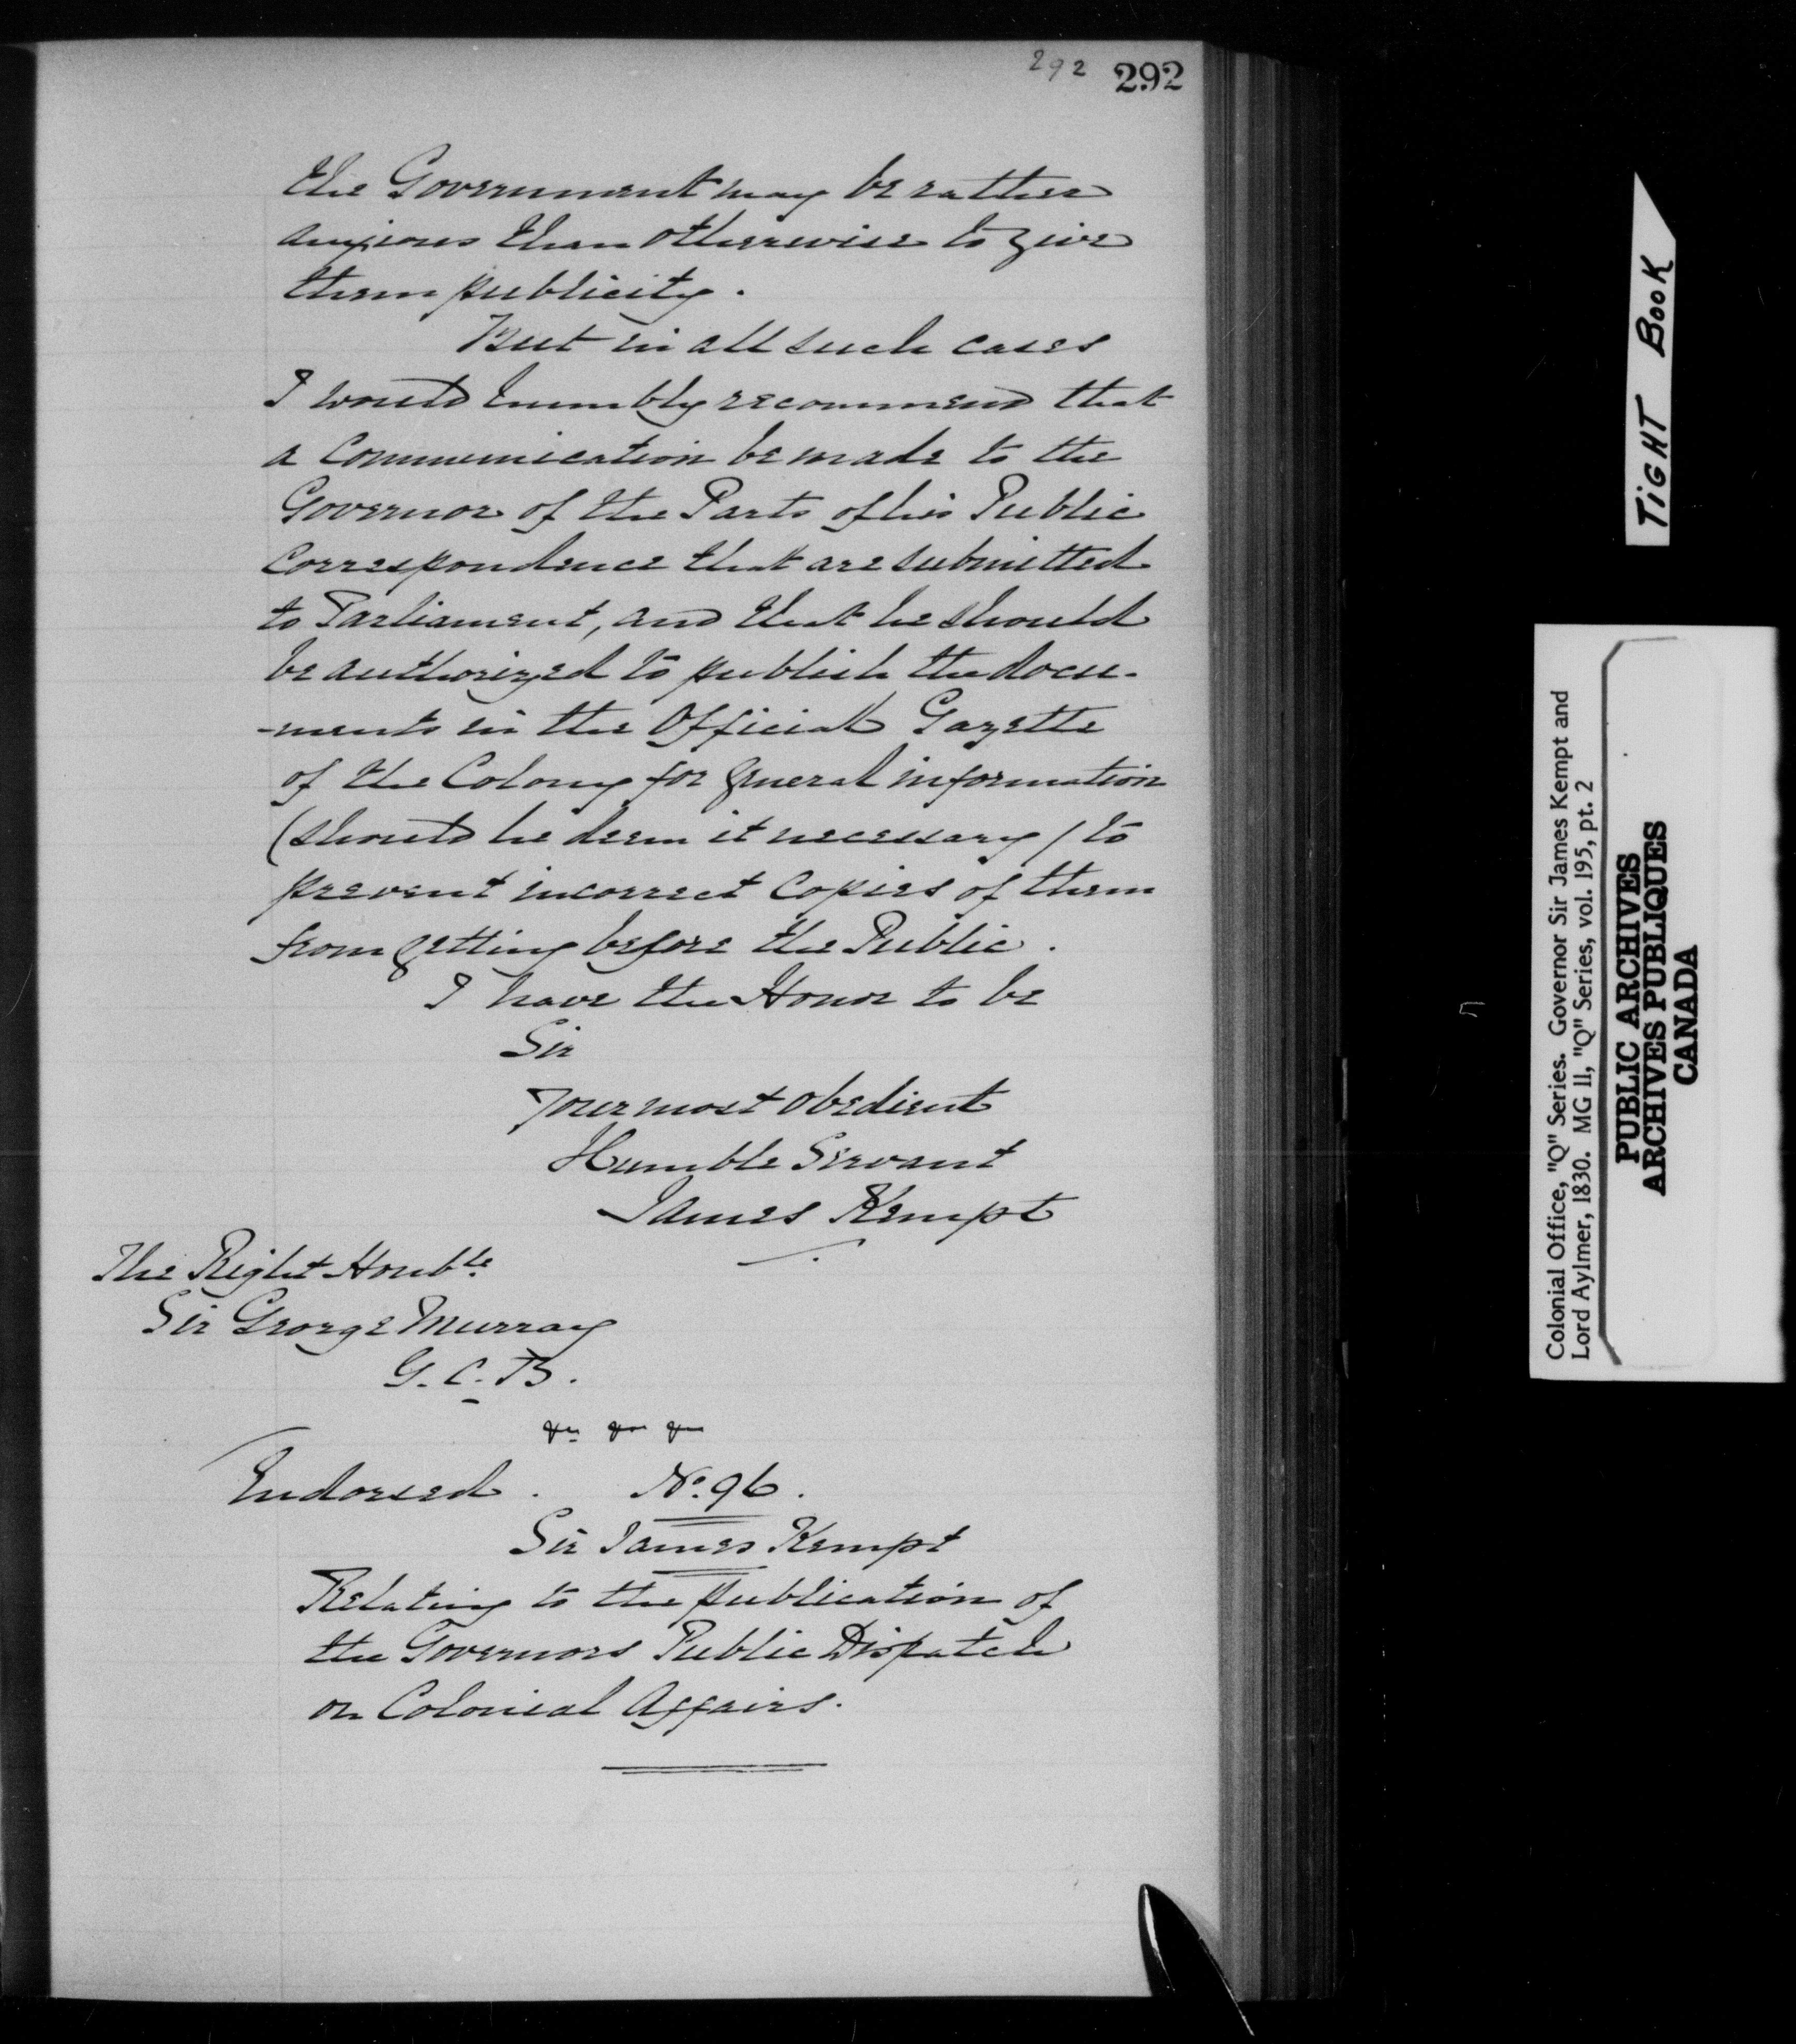 292 292
the Government may be rather
anxious than otherwise to give
them publicity.
But in all such cases
I would humbly recommend that
a Communication be made to the
Governor of the Parts of his Public
Correspondence that are submitted
to Parliament, and that he should
be authorized to publish the docu-
-ments in the Official Gazette
of the Colony for general information
(should he deem it necessary) to
prevent incorrect Copies of them
from getting before the Public.
I have the Honor to be
Sir
Your most obedient
Humble Servant
James Kempt
The Right Honble
Sir George Murray
G.C.B.
Endorsed. No. 96.
Sir James Kempt
Relating to the publication of
the Governors Public Dispatch
on Colonial Affairs.
TIGHT BOOK
Colonial Office, "Q" Series. Governor Sir James Kempt and
Lord Aylmer, 1830. MG 11, "Q" Series, vol. 195, pt. 2
PUBLIC ARCHIVES
ARCHIVES PUBLIQUES
CANADA